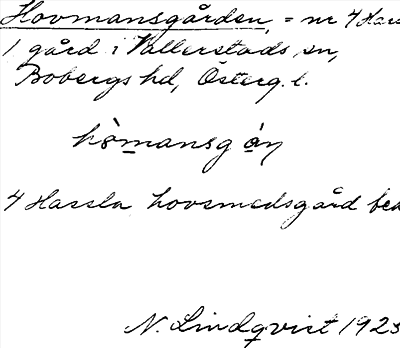 Hovmansgården, = nr 4 Hass
1 gård i Vallerstads sn,
Bobergs hd, Österg. l.
hòmansg áṇ
4 Hassla hovsmedsgård bea
N. Lindqvist 1923